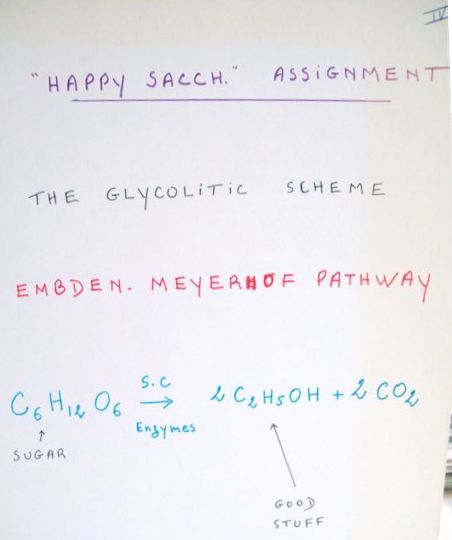 IV
"HAPPY SACCH." ASSIGNMENT
THE GLYCOLITIC SCHEME
EMBDEN. MEYERHOF PATHWAY
C6H12O6 S.C → Enzymes 2 C2H5OH + 2 CO2
SUGAR
GOOD
STUFF